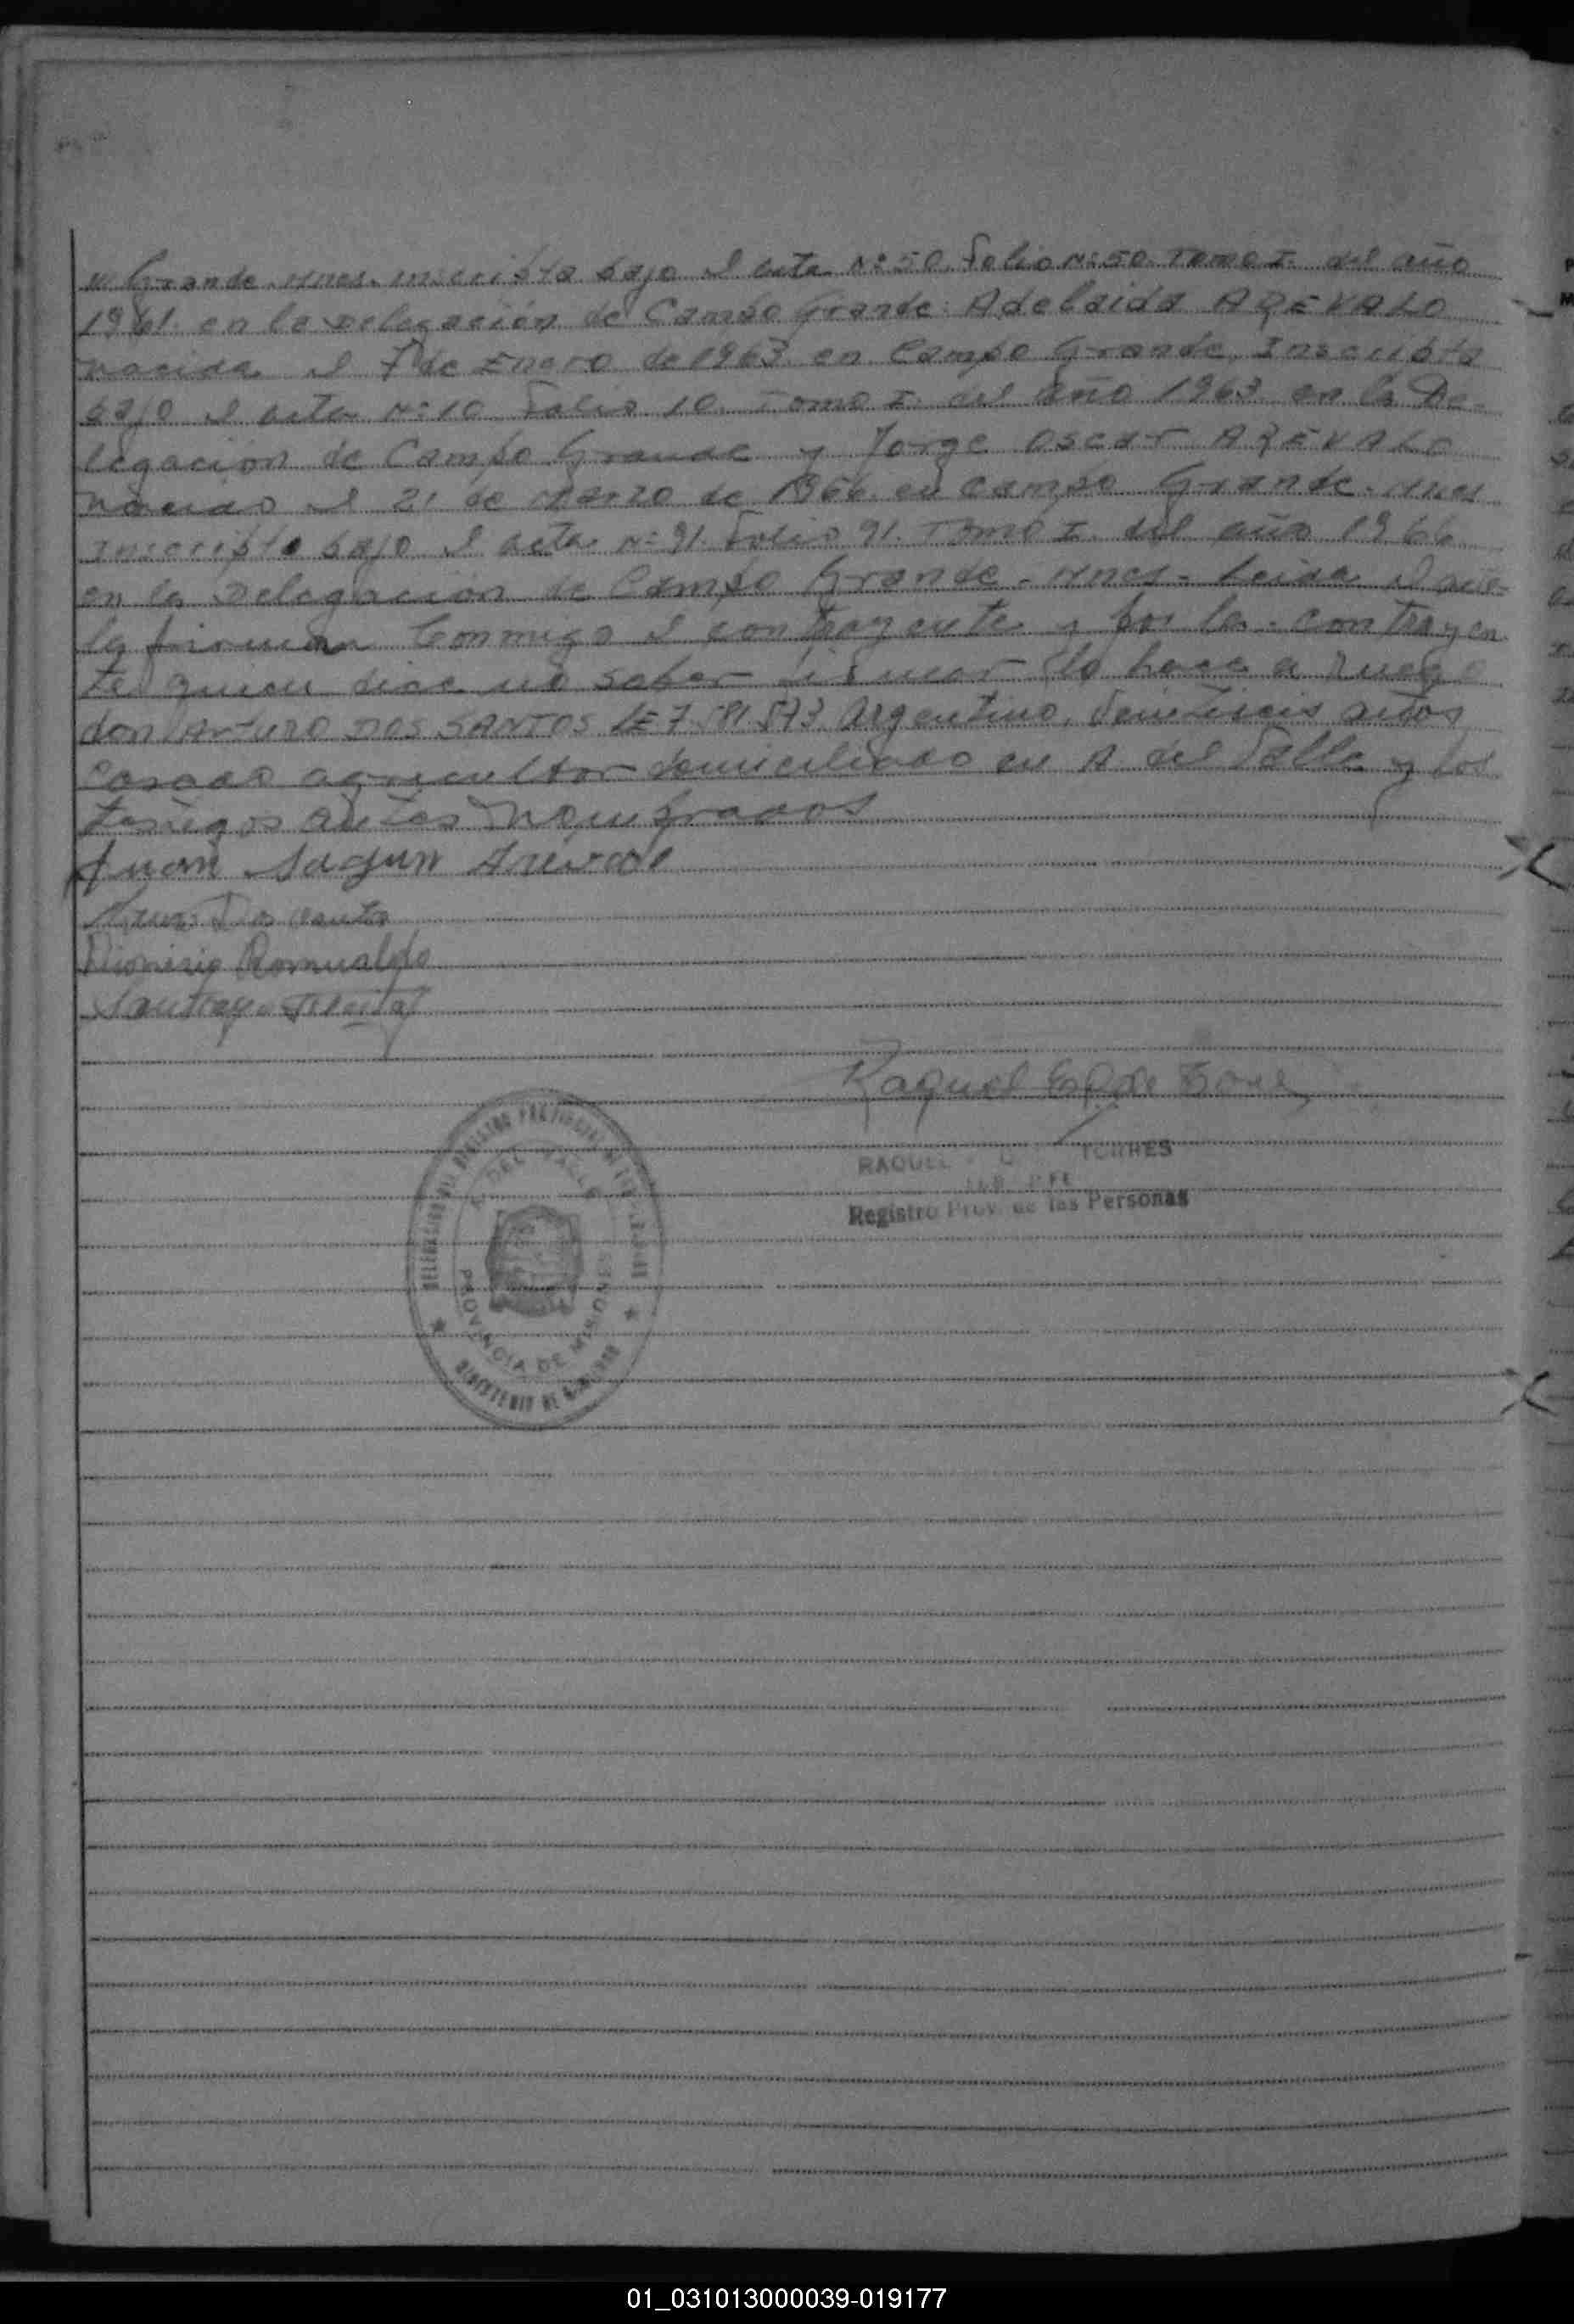 /// Grande. Mnes. inscripta bajo el acta Nº 50. Folio Nº 50. Tomo I. del año
1961. en la Delegación de Campo Grande. Adelaida AREVALO
nacida el 7 de Enero de 1963. en Campo Grande. Inscripta
bajo el acta Nº 10 Folio 10. Tomo I. del Año 1963 en la De-
legación de Campo Grande y Jorge Oscar AREVALO
nacido el 21 de Marzo de 1966 en Campo Grande. Mnes
inscripto bajo el acta Nº 91. Folio 91. Tomo I. del año 1966
en la Delegación de Campo Grande. Mnes. Leida el acta
la firman conmigo el contrayente y por la contrayen
te quien dice no saber firmar lo hace a ruego
don Arturo DOS SANTOS LE 7.581.573 Argentino, veintiseis años
casado agricultor domiciliado en A. del Valle y los
testigos antes nombrados
Juan Arevalo
Dos Santos
Dionisio Romualdo
Santiago
Raquel de
RAQUEL TORRES
Registro Prov. de las Personas
DELEGACION DEL REGISTRO PROVINCIAL DE LAS PERSONAS
A. DEL VALLE
PROVINCIA DE MISIONES
MINISTERIO DE GOBIERNO
01_031013000039-019177